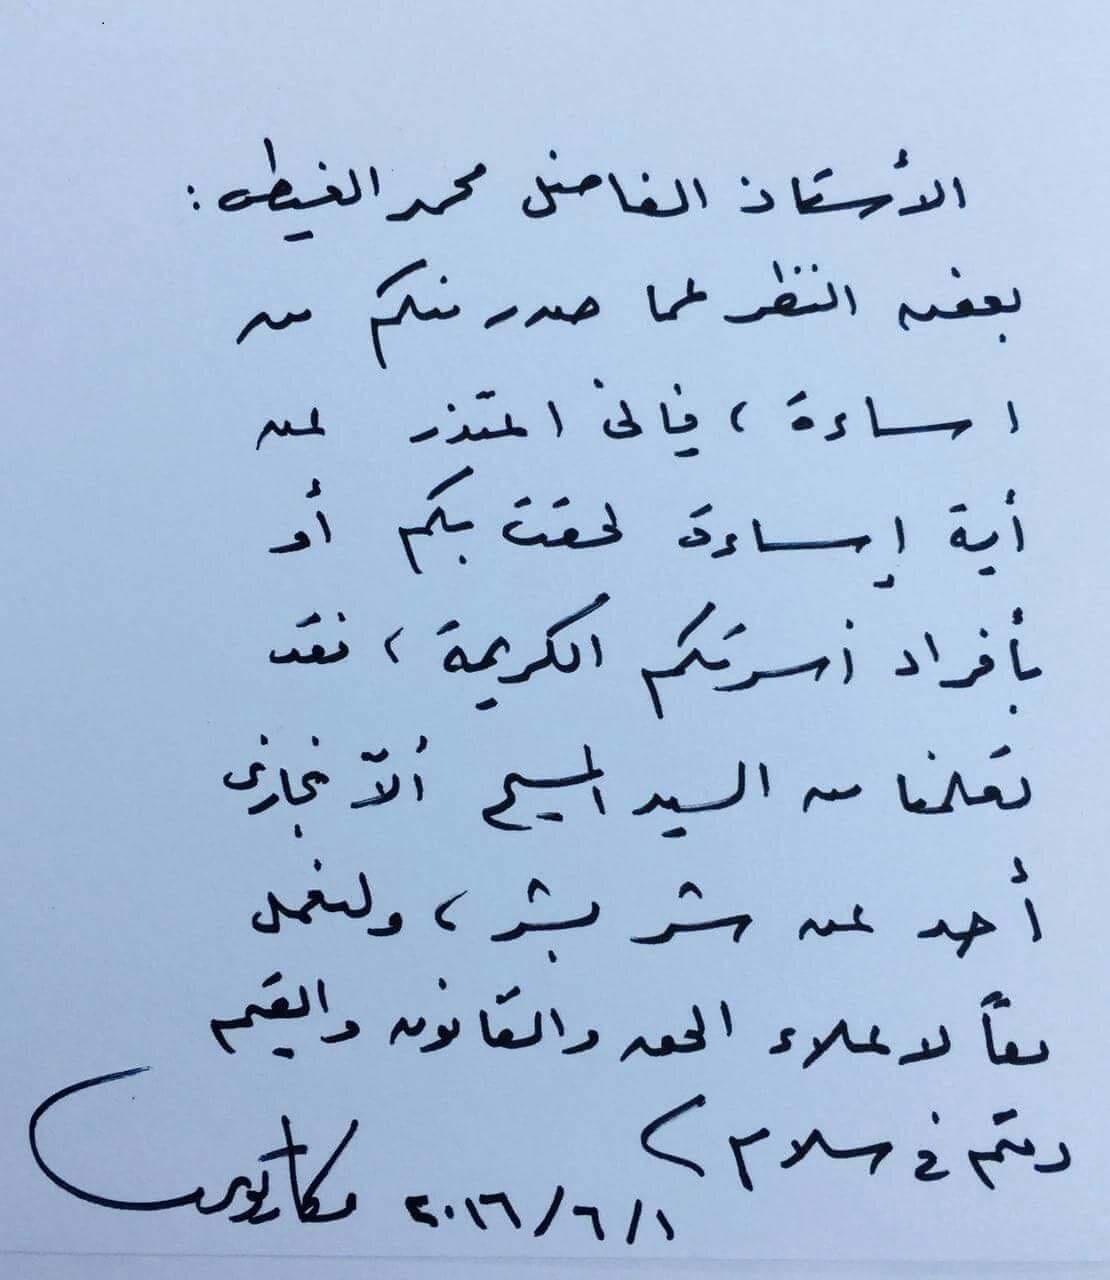 الأستاذ الفاضل محمد الغيطى :
بغض النظر لما صدر منكم من
اساءة ، فإنى اعتذر عن
أية إساءة لحقت بكم أو
بأفراد أسرتكم الكريمة ، فقد
تعلمنا من السيد المسيح ألاّ نجازى
أحد عن شر بشر ، ولنعمل
معاً لاعلاء الحق والقانون والقيم
دمتم فى سلام ،
٢٠١٦/٦/١ مكاريوس